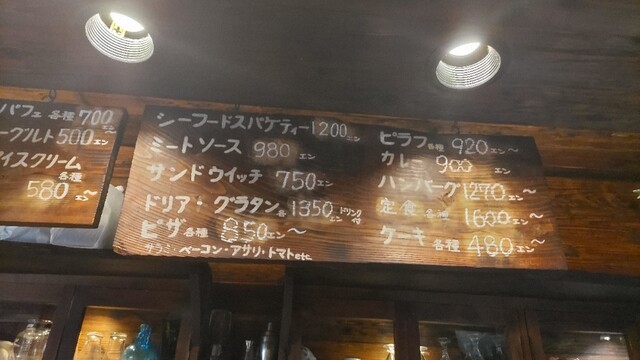 パフェ 各種 700エン
ーグルト 500エン
イスクリーム
各種
580エン〜
シーフードスパゲティー 1200エン
ミートソース 980エン
サンドウイッチ 750エン
ドリア・グラタン各 1350エン ドリンク付
ピザ各種 850エン〜
サラミ・ベーコン・アサリ・トマトetc.
ピラフ各種 920エン〜
カレー 900エン〜
ハンバーグ 1270エン〜
定食各種 1600エン〜
ケーキ各種 480エン〜